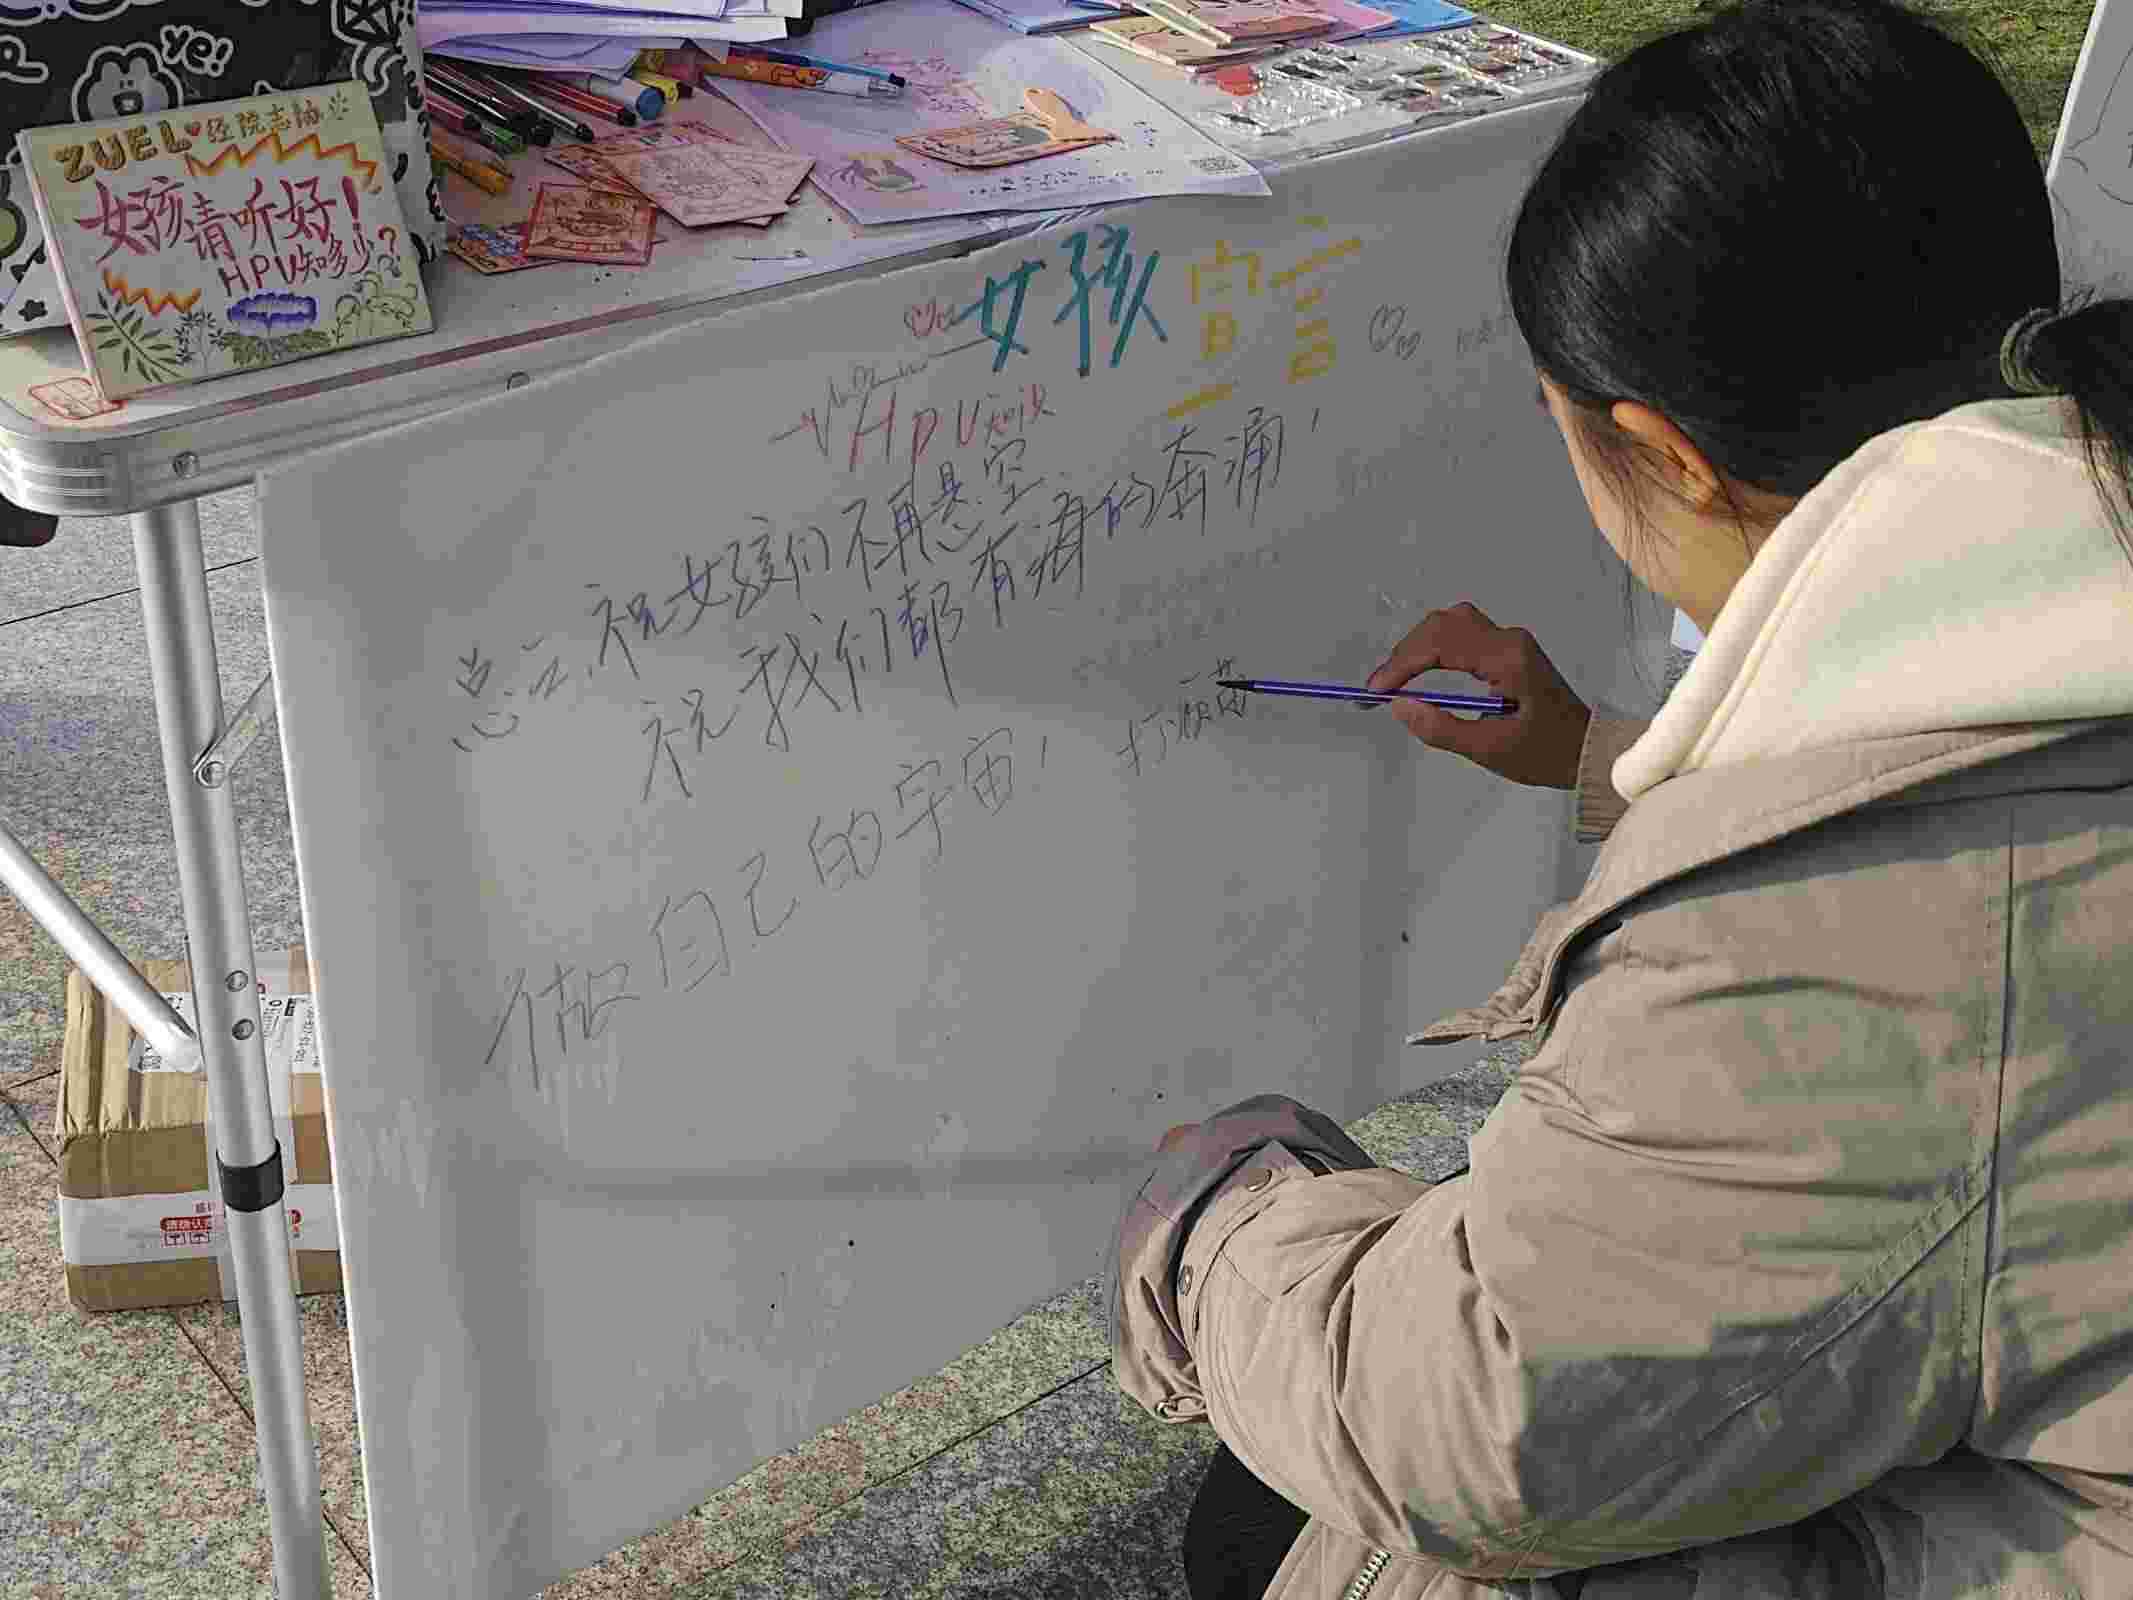 ye!
ZUEL 经院志协
女孩请听好！
HPV知多少？
女孩宣言
HPV知识
总之，祝女孩们不再悬空
祝我们都有满的奔涌，
做自己的宇宙，
打疫苗